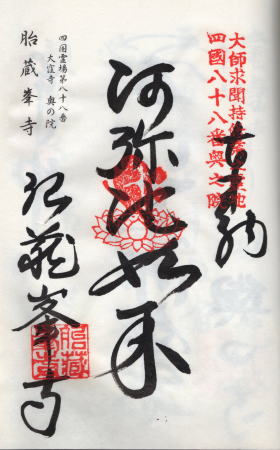 奉納
大師求聞持
四國八十八番奥之院
阿弥陀如来
四国霊場第八十八番
大窪寺 奥の院
胎蔵峯寺
胎蔵峯寺
胎藏
峯寺